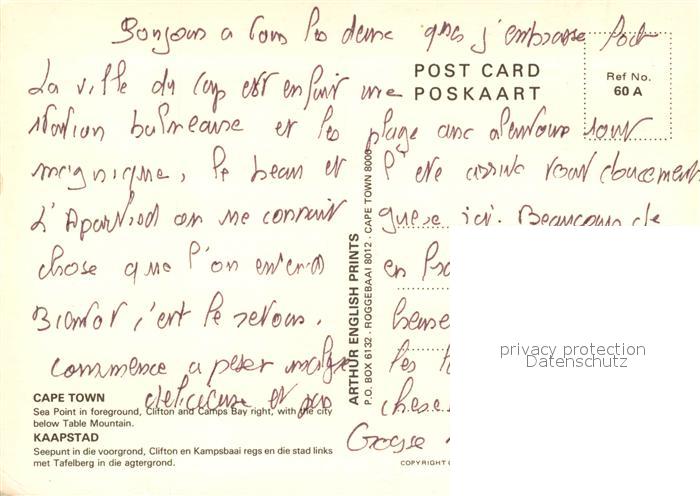 Bonjour a tous les deux que j'embrasse fort
La ville du cap est en fait une
station balneaire et les plage aux alentours sont
magnique, le beau et l'ete arrive tout doucement
L'Apartied on ne connait guere ici. Beaucoup de
chose que l'on entend en
Bientot c'est le retour. heure
commence a peser malgre les
delicieuse et pas
Grosse
POST CARD
POSKAART
Ref No.
60 A
ARTHUR ENGLISH PRINTS
P.O. BOX 6132 . ROGGEBAAI 8012 . CAPE TOWN 8000
CAPE TOWN
Sea Point in foreground, Clifton and Camps Bay right, with the city
below Table Mountain.
KAAPSTAD
Seepunt in die voorgrond, Clifton en Kampsbaai regs en die stad links
met Tafelberg in die agtergrond.
COPYRIGHT
privacy protection
Datenschutz